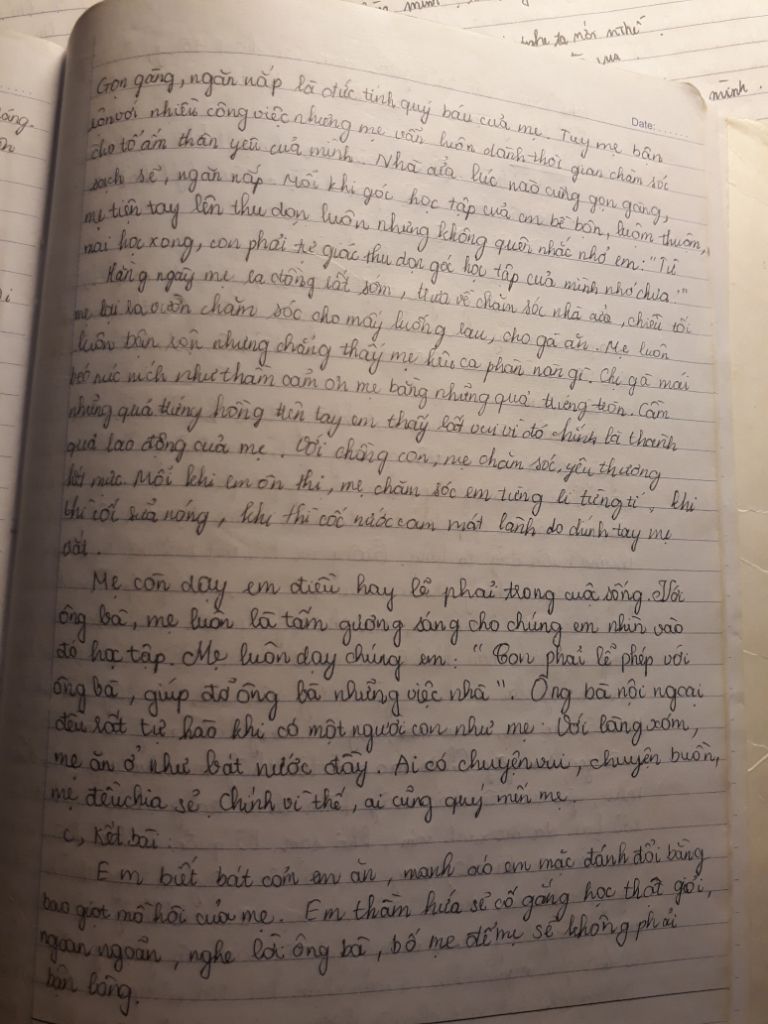 minh
như ta mới nghề.
mình.
Date:
Gọn gàng, ngăn nắp là đức tính quý báu của mẹ. Tuy mẹ bận
với nhiều công việc nhưng mẹ vẫn luôn dành thời gian chăm sóc
cho tổ ấm thân yêu của mình. Nhà cửa lúc nào cũng gọn gàng,
sạch sẽ, ngăn nắp. Mỗi khi góc học tập của em bề bộn, luôm thuôm,
mẹ tiện tay lên thu dọn luôn nhưng không quên nhắc nhở em: "Từ
mai học xong, con phải tự giác thu dọn góc học tập của mình nhớ chưa!"
Hàng ngày mẹ ra đồng rất sớm, trưa về chăm sóc nhà cửa, chiều tối
mẹ lại ra vườn chăm sóc cho mấy luống rau, cho gà ăn. Mẹ luôn
luôn bận rộn nhưng chẳng thấy mẹ kêu ca phàn nàn gì. Chị gà mái
béo núc ních như thầm cảm ơn mẹ bằng những quả trứng tròn. Cầm
những quả trứng hồng trên tay em thấy rất vui vì đó chính là thành
quả lao động của mẹ. Với chồng con, mẹ chăm sóc, yêu thương
hết mức. Mỗi khi em ôn thi, mẹ chăm sóc em từng li từng tí, khi
thì cốc sữa nóng, khi thì cốc nước cam mát lành do chính tay mẹ
vắt.
Mẹ còn dạy em điều hay lẽ phải trong cuộ sống. Với
ông bà, mẹ luôn là tấm gương sáng cho chúng em nhìn vào
đó học tập. Mẹ luôn dạy chúng em: "Con phải lễ phép với
ông bà, giúp đỡ ông bà những việc nhà". Ông bà nội ngoại
đều rất tự hào khi có một người con như mẹ. Với làng xóm,
mẹ ăn ở như bát nước đầy. Ai có chuyện vui, chuyện buồn,
mẹ đều chia sẻ. Chính vì thế, ai cũng quý mến mẹ.
c, Kết bài:
Em biết bát cơm em ăn, manh áo em mặc đánh đổi bằng
bao giọt mồ hôi của mẹ. Em thầm hứa sẽ cố gắng học thật giỏi,
ngoan ngoãn, nghe lời ông bà, bố mẹ để mẹ sẽ không phải
bận lòng.